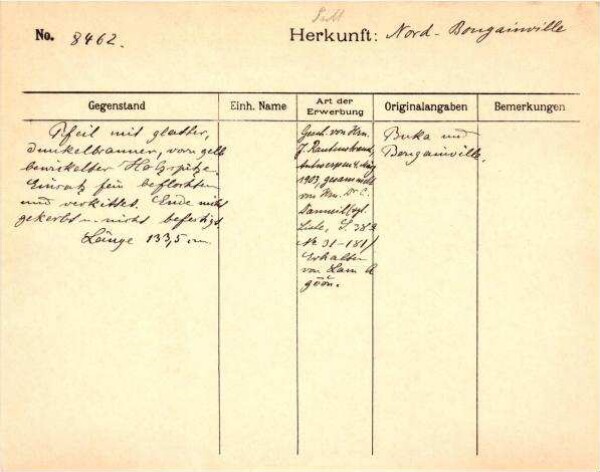 No. 8462.
Herkunft: Nord-Bougainville
Gegenstand
Einh. Name
Art der Erwerbung
Originalangaben
Bemerkungen
Pfeil mit glatter,
dunkelbrauner, vorn gelb
bewickelter Holzspitze.
Einsatz fein beflochten
und verkittet. Ende nicht
gekerbt u. nicht befestigt.
Länge 133,5 cm
Gesch. von Hrn.
J. Rautenstrauch,
Antwerpen
1903, gesammelt
von Hrn. Dr C.
Liste, S. 383
No 31-181)
Erhalten
von
Buka und
Bougainville.